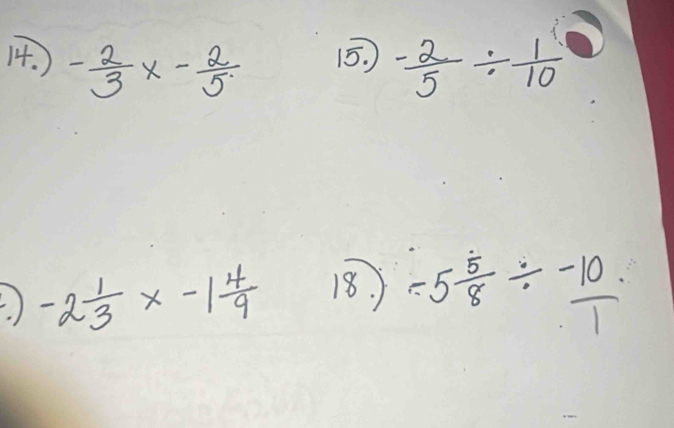 14.) -2/3 x -2/5
15.) -2/5 ÷ 1/10
.) -2 1/3 x -1 4/9
18.) -5 5/8 ÷ -10/1